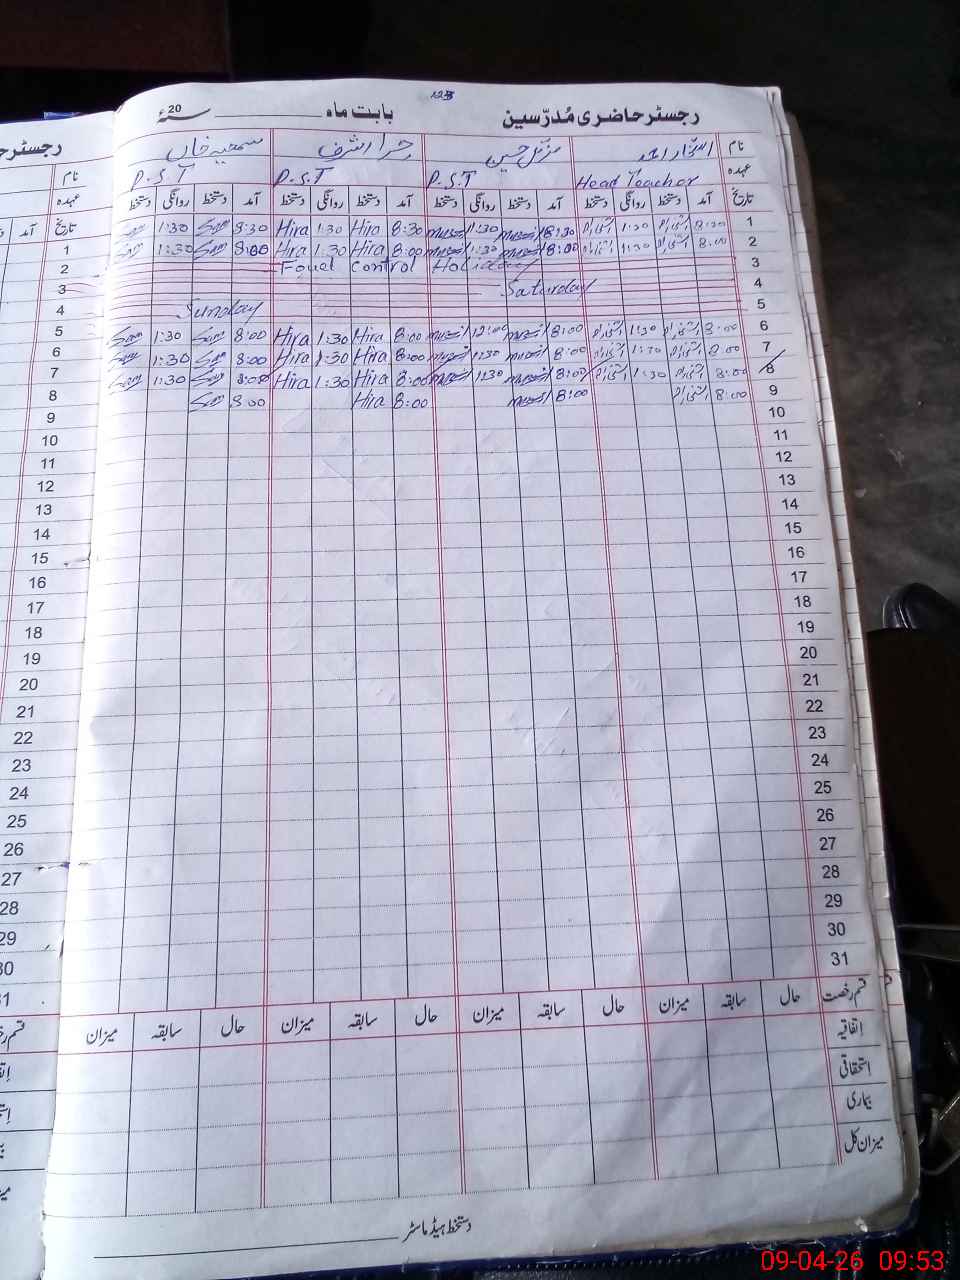 123
رجسٹر حاضری مُدرّسین بابت ماہ ــــــــــ سنہ 20ء
نام اسرار احمد مزمل حسین حرا اشرف سمعیہ خاں
عہدہ Head Teacher P.S.T P.S.T P.S.T
تاریخ آمد دستخط روانگی دستخط آمد دستخط روانگی دستخط آمد دستخط روانگی دستخط آمد دستخط روانگی دستخط
1 8:30 1:30 8:30 1:30 8:30 Hira 1:30 Hira 8:30 Sam 1:30 Sam
2 8:00 1:30 8:00 1:30 8:00 Hira 1:30 Hira 8:00 Sam 1:30 Sam
3 Fouel Control Holiday
4 Saturday
5 Sunday
6 8:00 1:30 8:00 12:00 8:00 Hira 1:30 Hira 8:00 Sam 1:30 Sam
7 8:00 1:30 8:00 1:30 8:00 Hira 1:30 Hira 8:00 Sam 1:30 Sam
8 8:00 1:30 8:00 1:30 8:00 Hira 1:30 Hira 8:00 Sam 1:30 Sam
9 8:00 8:00 8:00 Hira 8:00 Sam
10
11
12
13
14
15
16
17
18
19
20
21
22
23
24
25
26
27
28
29
30
31
قسم رخصت حال سابقہ میزان حال سابقہ میزان حال سابقہ میزان حال سابقہ میزان
اتفاقیہ
استحقاقی
بیماری
میزان کل
دستخط ہیڈ ماسٹر
نام
عہدہ
تاریخ
1
2
3
4
5
6
7
8
9
10
11
12
13
14
15
16
17
18
19
20
21
22
23
24
25
26
27
28
29
30
31
09-04-26 09:53